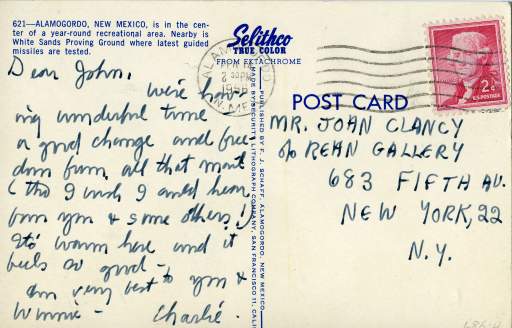 621—ALAMOGORDO, NEW MEXICO, is in the cen-
ter of a year-round recreational area. Nearby is
White Sands Proving Ground where latest guided
missiles are tested.
Selithco
TRUE COLOR
FROM EKTACHROME
Dear John,
We're hav-
ing wonderful time
a good change and free-
dom from all that mail
(tho I wish I could hear
from you & some others!)
It's warm here and it
feels so good—
Our very best to you &
Winnie— Charlie.
PUBLISHED BY F. SCHAFF, ALAMOGORDO, NEW MEXICO
MADE BY SECURITY LITHOGRAPH COMPANY, SAN FRANCISCO 11, CALIF
ALAMOGORDO
2 30PM
1956
N. MEX.
2¢
U.S. POSTAGE
POST CARD
MR. JOHN CLANCY
c/o REHN GALLERY
683 FIFTH AV.
NEW YORK, 22
N.Y.